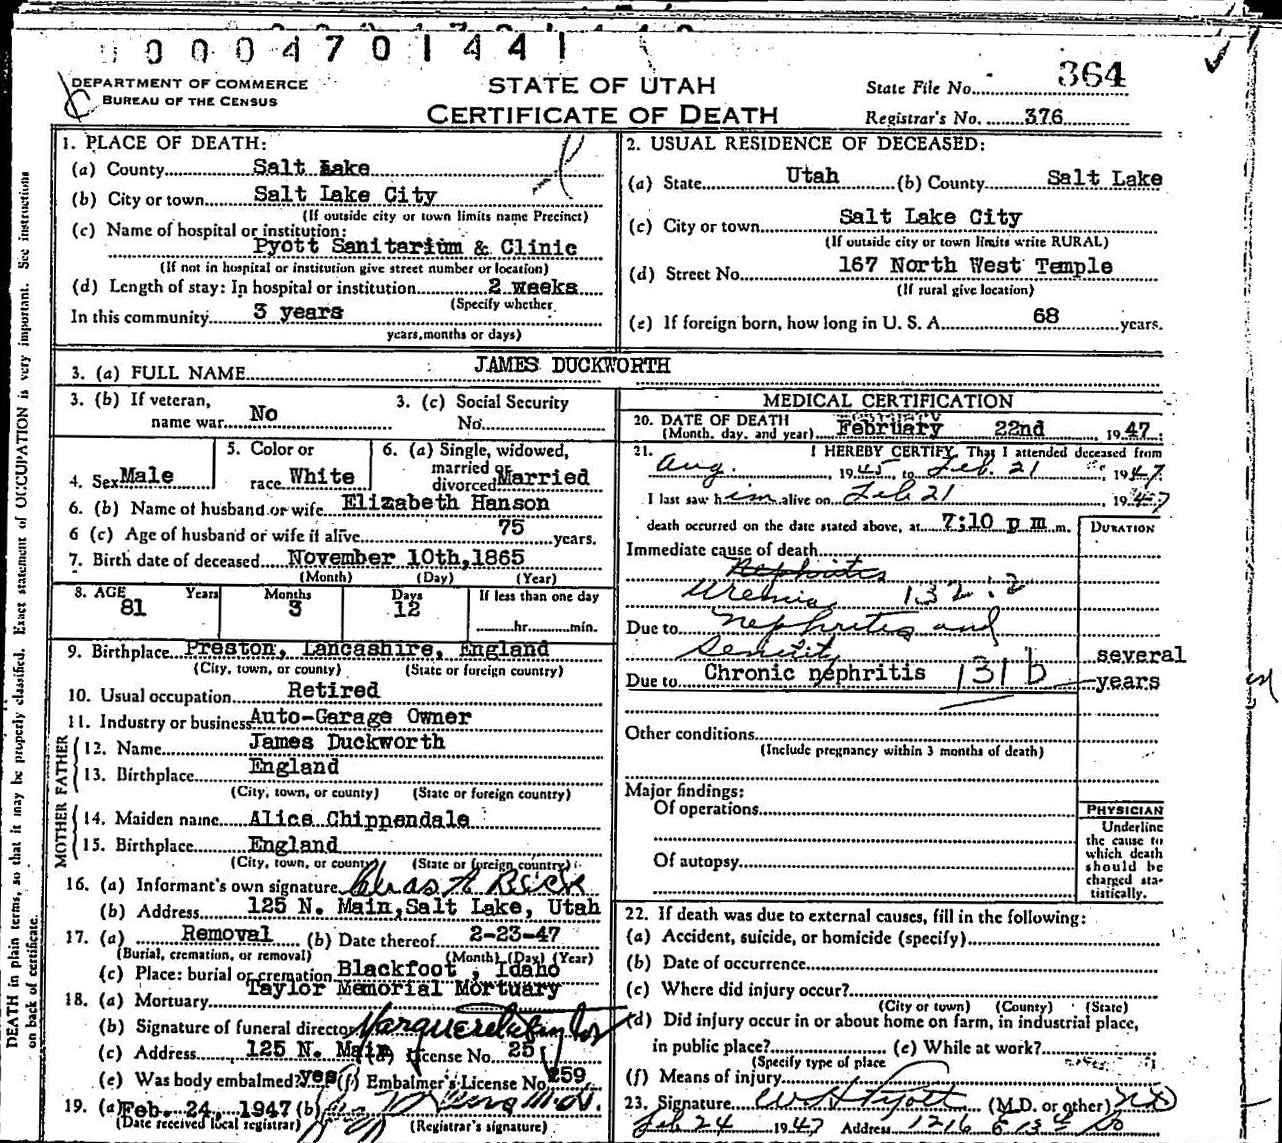 0 0 0 4 7 0 1 4 4 1
DEPARTMENT OF COMMERCE
BUREAU OF THE CENSUS
STATE OF UTAH
CERTIFICATE OF DEATH
State File No. 364
Registrar's No. 376
1. PLACE OF DEATH:
(a) County Salt Lake
(b) City or town Salt Lake City
(If outside city or town limits name Precinct)
(c) Name of hospital or institution:
Pyott Sanitarium & Clinic
(If not in hospital or institution give street number or location)
(d) Length of stay: In hospital or institution 2 weeks
(Specify whether
In this community 3 years
years, months or days)
2. USUAL RESIDENCE OF DECEASED:
(a) State Utah (b) County Salt Lake
(c) City or town Salt Lake City
(If outside city or town limits write RURAL)
(d) Street No. 167 North West Temple
(If rural give location)
(e) If foreign born, how long in U. S. A. 68 years.
3. (a) FULL NAME JAMES DUCKWORTH
3. (b) If veteran,
name war No
3. (c) Social Security
No.
4. Sex Male
5. Color or
race White
6. (a) Single, widowed,
married or
divorced Married
6. (b) Name of husband or wife Elizabeth Hanson
6 (c) Age of husband or wife if alive 75 years.
7. Birth date of deceased November 10th, 1865
(Month) (Day) (Year)
8. AGE Years Months Days If less than one day
81 3 12 hr. min.
9. Birthplace Preston, Lancashire, England
(City, town, or county) (State or foreign country)
10. Usual occupation Retired
11. Industry or business Auto-Garage Owner
FATHER
12. Name James Duckworth
13. Birthplace England
(City, town, or county) (State or foreign country)
MOTHER
14. Maiden name Alice Chippendale
15. Birthplace England
(City, town, or county) (State or foreign country)
16. (a) Informant's own signature
(b) Address 125 N. Main, Salt Lake, Utah
17. (a) Removal (b) Date thereof 2-23-47
(Burial, cremation, or removal) (Month) (Day) (Year)
(c) Place: burial or cremation Blackfoot, Idaho
18. (a) Mortuary Taylor Memorial Mortuary
(b) Signature of funeral director
(c) Address 125 N. Main (d) License No. 251
(e) Was body embalmed? yes (f) Embalmer's License No. 259
19. (a) Feb. 24, 1947 (b)
(Date received local registrar) (Registrar's signature)
MEDICAL CERTIFICATION
20. DATE OF DEATH
(Month, day, and year) February 22nd 1947
21. I HEREBY CERTIFY, That I attended deceased from
Aug. 1945, to Feb. 21 1947.
I last saw him alive on Feb 21 1947
death occurred on the date stated above, at 7:10 p m m.
DURATION
Immediate cause of death
Nephrites
Uremia 132:2
Due to nephrites and
Senility
Due to Chronic nephritis 131 b several
years
Other conditions
(Include pregnancy within 3 months of death)
Major findings:
Of operations
Of autopsy
PHYSICIAN
Underline
the cause to
which death
should be
charged sta-
tistically.
22. If death was due to external causes, fill in the following:
(a) Accident, suicide, or homicide (specify)
(b) Date of occurrence
(c) Where did injury occur?
(City or town) (County) (State)
(d) Did injury occur in or about home on farm, in industrial place,
in public place? (e) While at work?
(Specify type of place
(f) Means of injury
23. Signature W H Pyott (M.D. or other)
Feb 24 1947 Address 1216 E 13th So
DEATH in plain terms, so that it may be properly classified. Exact statement of OCCUPATION is very important. See instructions
on back of certificate.